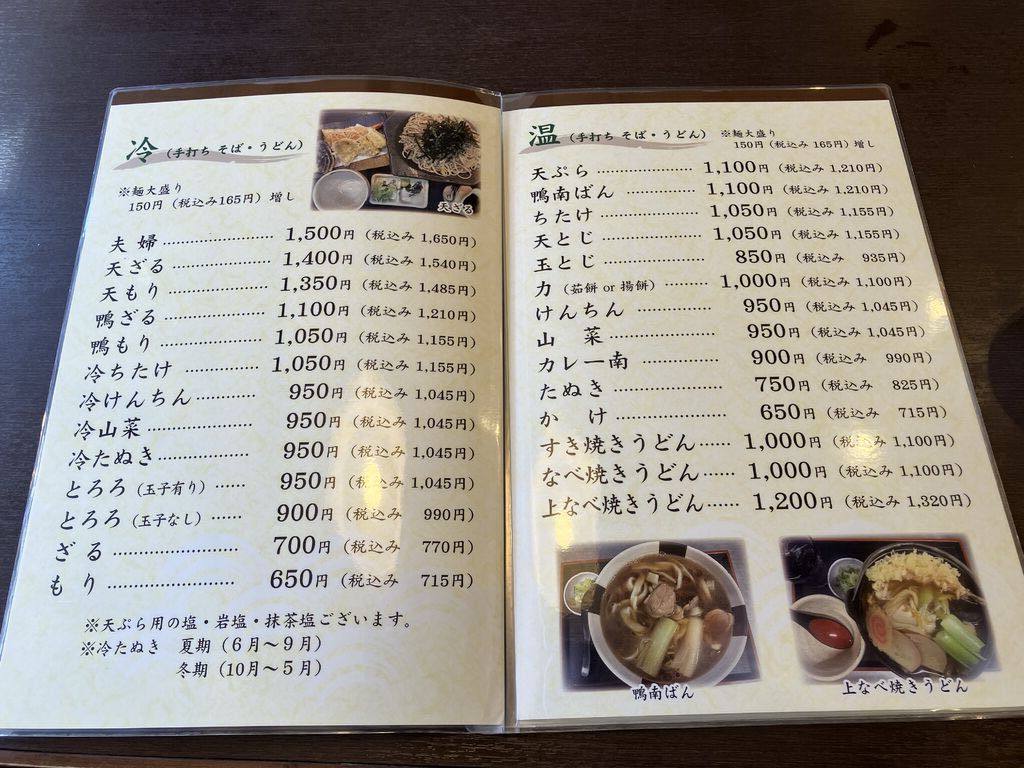 冷 (手打ち そば・うどん)
※麺大盛り
150円(税込み165円)増し
天ざる
夫 婦 …………………… 1,500円 (税込み 1,650円)
天ざる ………………… 1,400円 (税込み 1,540円)
天もり ………………… 1,350円 (税込み 1,485円)
鴨ざる ………………… 1,100円 (税込み 1,210円)
鴨もり ………………… 1,050円 (税込み 1,155円)
冷ちたけ …………… 1,050円 (税込み 1,155円)
冷けんちん ………… 950円 (税込み 1,045円)
冷山菜 ………………… 950円 (税込み 1,045円)
冷たぬき ……………… 950円 (税込み 1,045円)
とろろ (玉子有り) …… 950円 (税込み 1,045円)
とろろ (玉子なし) …… 900円 (税込み 990円)
ざ る …………………… 700円 (税込み 770円)
も り …………………… 650円 (税込み 715円)
※天ぷら用の塩・岩塩・抹茶塩ございます。
※冷たぬき 夏期(6月〜9月)
冬期(10月〜5月)
温 (手打ち そば・うどん)
※麺大盛り
150円(税込み 165円)増し
天ぷら ………………… 1,100円 (税込み 1,210円)
鴨南ばん ……………… 1,100円 (税込み 1,210円)
ちたけ ………………… 1,050円 (税込み 1,155円)
天とじ ………………… 1,050円 (税込み 1,155円)
玉とじ ………………… 850円 (税込み 935円)
力 (茹餅 or 揚餅) ……… 1,000円 (税込み 1,100円)
けんちん ……………… 950円 (税込み 1,045円)
山 菜 ………………… 950円 (税込み 1,045円)
カレー南 ……………… 900円 (税込み 990円)
たぬき ………………… 750円 (税込み 825円)
か け ………………… 650円 (税込み 715円)
すき焼きうどん …… 1,000円 (税込み 1,100円)
なべ焼きうどん …… 1,000円 (税込み 1,100円)
上なべ焼きうどん …… 1,200円 (税込み 1,320円)
鴨南ばん
上なべ焼きうどん